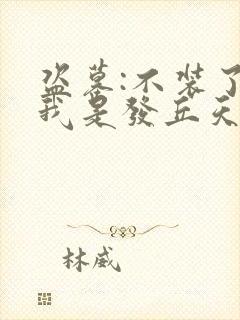 盗墓:不装了
我是發丘天
林威